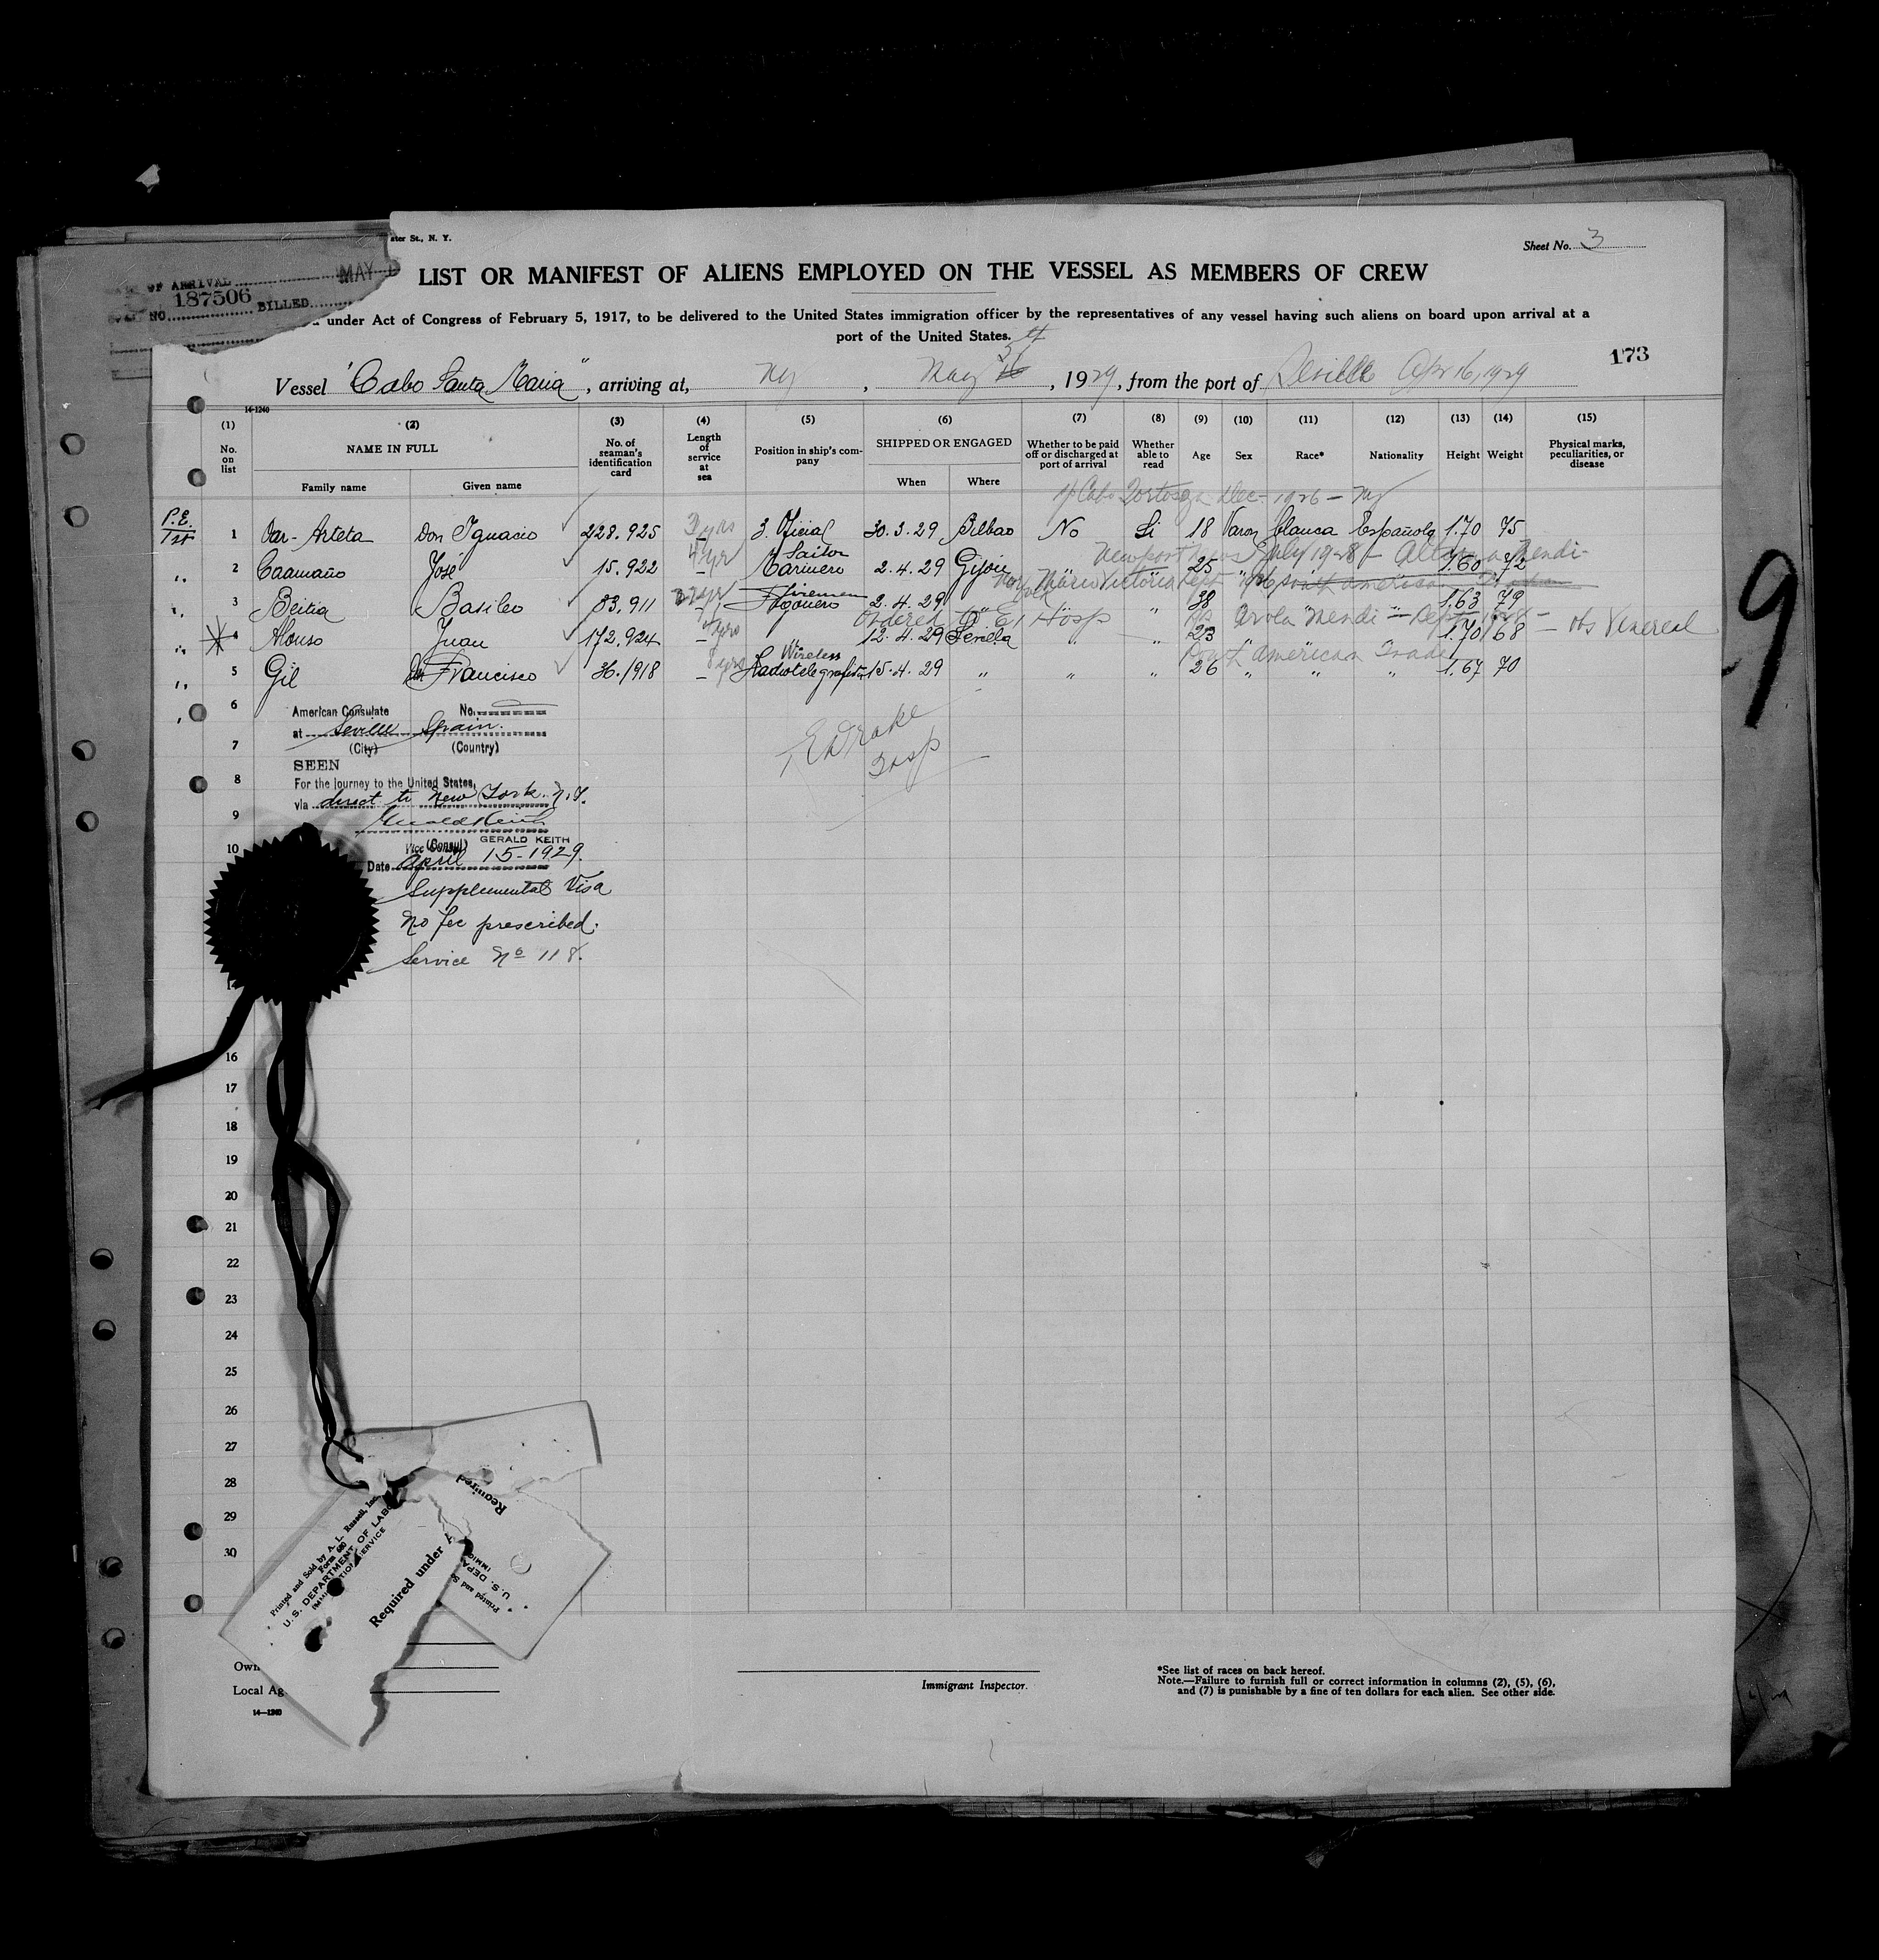 ster St., N. Y.
Sheet No. 3
OF ARRIVAL MAY
NO. 187506 BILLED
LIST OR MANIFEST OF ALIENS EMPLOYED ON THE VESSEL AS MEMBERS OF CREW
under Act of Congress of February 5, 1917, to be delivered to the United States immigration officer by the representatives of any vessel having such aliens on board upon arrival at a
port of the United States.
173
Vessel "Cabo Santa Maria", arriving at, NY, May, 1929, from the port of Seville Apr 16, 1929
14-1240
(1) (2) (3) (4) (5) (6) (7) (8) (9) (10) (11) (12) (13) (14) (15)
No. on list
NAME IN FULL
Family name
Given name
No. of seaman's identification card
Length of service at sea
Position in ship's company
SHIPPED OR ENGAGED
When
Where
Whether to be paid off or discharged at port of arrival
Whether able to read
Age
Sex
Race*
Nationality
Height
Weight
Physical marks, peculiarities, or disease
Cabo Tortosa Dec- 1926 - NY
P.E.
1st
1 Var- Arteta Don Ignacio 228.925 3 yrs 3. Oficial 30.3.29 Bilbao No Si 18 Varon blanca Española 1.70 75
Newport News July 1928 - Altuna Mendi-
2 Caamaño José 15.922 4 yr Sailor Marinero 2.4.29 Gijón " " 25 " " " 1.60 72
Maria Victoria Sept 1926 South American
3 Beitia Basileo 83.911 Firemen Fogonero 2.4.29 " " " 38 " " " 1.63 79
Ordered to E I Hosp
Arola Mendi - Sept 1928 -
4 Alonso Juan 172.924 4 yrs " 12.4.29 Sevilla " " 23 " " " 1.70 68 - Hs Venereal
South American Trade
5 Gil Francisco 36.1918 8 yrs Wireless Radiotelegrafista 15.4.29 " " " 26 " " " 1.67 70
6
7
8
9
10
16
17
18
19
20
21
22
23
24
25
26
27
28
29
30
American Consulate No.
at Seville Spain.
(City) (Country)
SEEN
For the journey to the United States,
via direct to New York. N.Y.
Gerald Keith
Vice (Consul) GERALD KEITH
Date April 15-1929.
Supplemental Visa
No fee prescribed.
Service No 118.
E Drake
Insp
9
Printed and Sold by A. L. Russell, Inc.
Form 680
U. S. DEPARTMENT OF LABOR
IMMIGRATION SERVICE
Required under A
Required
U. S. DEPA
IMMIG
Printed and S
Own
Local Ag
14-1240
Immigrant Inspector.
*See list of races on back hereof.
Note.—Failure to furnish full or correct information in columns (2), (5), (6),
and (7) is punishable by a fine of ten dollars for each alien. See other side.